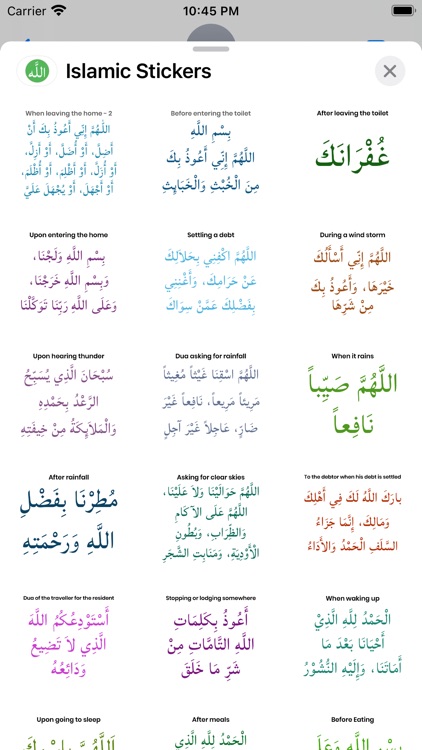 Carrier
10:45 PM
Islamic Stickers
When leaving the home - 2
اللَّهُمَّ إِنِّي أَعُوذُ بِكَ أَنْ
أَضِلَّ، أَوْ أُضَلَّ، أَوْ أَزِلَّ،
أَوْ أُزَلَّ، أَوْ أَظْلِمَ، أَوْ أُظْلَمَ،
أَوْ أَجْهَلَ، أَوْ يُجْهَلَ عَلَيَّ
Before entering the toilet
بِسْمِ اللَّهِ
اللَّهُمَّ إِنِّي أَعُوذُ بِكَ
مِنَ الْخُبْثِ وَالْخَبَائِثِ
After leaving the toilet
غُفْرَانَكَ
Upon entering the home
بِسْمِ اللَّهِ وَلَجْنَا،
وَبِسْمِ اللَّهِ خَرَجْنَا،
وَعَلَى اللَّهِ رَبِّنَا تَوَكَّلْنَا
Settling a debt
اللَّهُمَّ اكْفِنِي بِحَلَالِكَ
عَنْ حَرَامِكَ، وَأَغْنِنِي
بِفَضْلِكَ عَمَّنْ سِوَاكَ
During a wind storm
اللَّهُمَّ إِنِّي أَسْأَلُكَ
خَيْرَهَا، وَأَعُوذُ بِكَ
مِنْ شَرِّهَا
Upon hearing thunder
سُبْحَانَ الَّذِي يُسَبِّحُ
الرَّعْدُ بِحَمْدِهِ
وَالْمَلَائِكَةُ مِنْ خِيفَتِهِ
Dua asking for rainfall
اللَّهُمَّ اسْقِنَا غَيْثًا مُغِيثًا
مَرِيئًا مَرِيعاً، نَافِعاً غَيْرَ
ضَارٍّ، عَاجِلاً غَيْرَ آجِلٍ
When it rains
اللَّهُمَّ صَيِّباً
نَافِعاً
After rainfall
مُطِرْنَا بِفَضْلِ
اللَّهِ وَرَحْمَتِهِ
Asking for clear skies
اللَّهُمَّ حَوَالَيْنَا وَلاَ عَلَيْنَا،
اللَّهُمَّ عَلَى الآكَامِ
وَالظِّرَابِ، وَبُطُونِ
الْأَوْدِيَةِ، وَمَنَابِتِ الشَّجَرِ
To the debtor when his debt is settled
بارَكَ اللَّهُ لَكَ فِي أَهْلِكَ
وَمَالِكَ، إِنَّمَا جَزَاءُ
السَّلَفِ الْحَمْدُ وَالأَدَاءُ
Dua of the traveller for the resident
أَسْتَوْدِعُكُمُ اللَّهَ
الَّذِي لاَ تَضِيعُ
وَدَائِعُهُ
Stopping or lodging somewhere
أَعُوذُ بِكَلِمَاتِ
اللَّهِ التَّامَّاتِ مِنْ
شَرِّ مَا خَلَقَ
When waking up
الْحَمْدُ لِلَّهِ الَّذِيْ
أَحْيَانَا بَعْدَ مَا
أَمَاتَنَا، وَإِلَيْهِ النُّشُوْرُ
Upon going to sleep
After meals
الْحَمْدُ لِلَّهِ الَّذِي
Before Eating
بِسْمِ اللَّهِ وَعَلَى